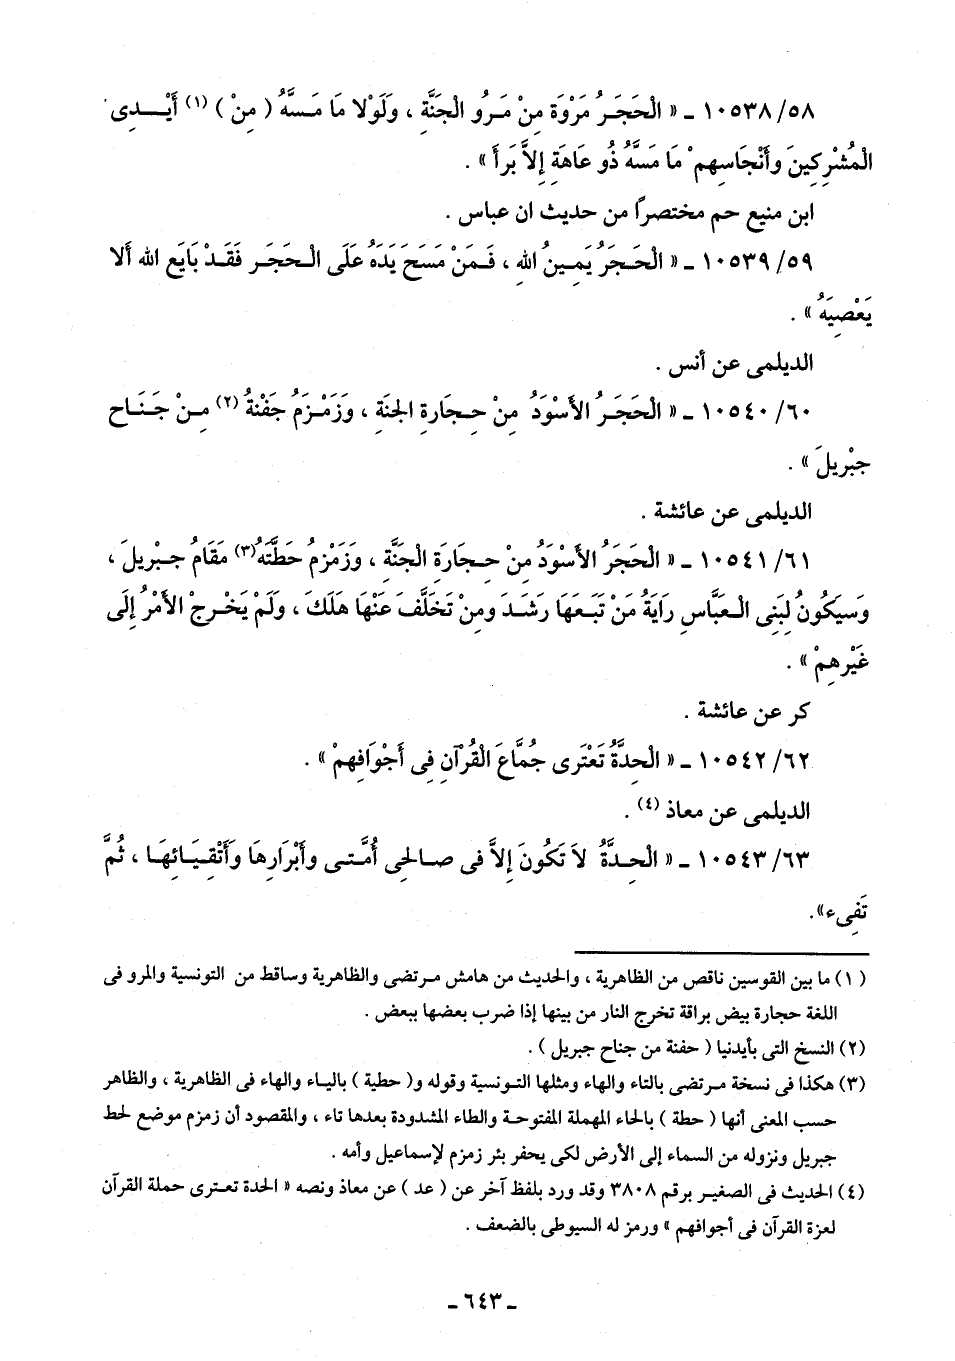 ١٠٥٣٨/٥٨ ـ « الْحَجَرُ مَرْوَة مِنْ مَرْوِ الْجَنَّةِ ، وَلَوْلا مَا مَسَّهُ ( مِنْ ) (١) أَيْدِى
الْمُشْرِكِينَ وَأَنْجَاسِهِمْ مَا مَسَّهُ ذُو عَاهَةٍ إِلاَّ بَرَأَ » .
ابن منيع حم مختصراً من حديث ان عباس .
١٠٥٣٩/٥٩ ـ « الْحَجَرُ يَمِينُ اللهِ ، فَمَنْ مَسَحَ يَدَهُ عَلَى الْحَجَرِ فَقَدْ بَايَع الله أَلا
يَعْصِيَهُ » .
الديلمى عن أنس .
١٠٥٤٠/٦٠ ـ « الْحَجَرُ الأَسْوَدُ مِنْ حِجَارَةِ الجنَةِ ، وَزَمْزَمُ جَفْنَةُ (٢) مِنْ جَنَاح
جِبْرِيلَ » .
الديلمى عن عائشة .
١٠٥٤١/٦١ ـ « الْحَجَرُ الأَسْوَدُ مِنْ حِجَارَةِ الْجَنَّةِ ، وَزَمْزمُ حَطَّتَهُ(٣) مَقَامُ جِبْرِيلَ ،
وَسَيَكُونُ لِبَنِى الْعَبَّاسِ رَايَةُ مَنْ تَبَعَهَا رَشَدَ وَمِنْ تَخَلَّفَ عَنْهَا هَلَكَ ، وَلَمْ يَخْرِجْ الأَمْرُ إِلَى
غَيْرِهِمْ » .
كر عن عائشة .
١٠٥٤٢/٦٢ ـ « الْحِدَّةُ تَعْتَرِى جُمَّاعَ الْقُرْآنِ فِى أَجْوَافِهِمْ » .
الديلمى عن معاذ (٤) .
١٠٥٤٣/٦٣ ـ « الْحِدَّةُ لاَ تَكُونَ إِلاَّ فى صالحِى أُمَّتى وأَبْرَارِهَا وأَتْقِيَائِهَا ، ثُمَّ
تَفِىء».
(١) ما بين القوسين ناقص من الظاهرية ، والحديث من هامش مرتضى والظاهرية وساقط من التونسية والمرو فى
اللغة حجارة بيض براقة تخرج النار من بينها إذا ضرب بعضها ببعض .
(٢) النسخ التى بأيدنيا ( حفنة من جناح جبريل ) .
(٣) هكذا فى نسخة مرتضى بالتاء والهاء ومثلها التونسية وقوله و( حطية ) بالياء والهاء فى الظاهرية ، والظاهر
حسب المعنى أنها ( حطة ) بالحاء المهملة المفتوحة والطاء المشدودة بعدها تاء ، والمقصود أن زمزم موضع لحط
جبريل ونزوله من السماء إلى الأرض لكى يحفر بئر زمزم لإسماعيل وأمه .
(٤) الحديث فى الصغير برقم ٣٨٠٨ وقد ورد بلفظ آخر عن ( عد ) عن معاذ ونصه « الحدة تعترى حملة القرآن
لعزة القرآن فى أجوافهم » ورمز له السيوطى بالضعف .
ـ ٦٤٣ ـ